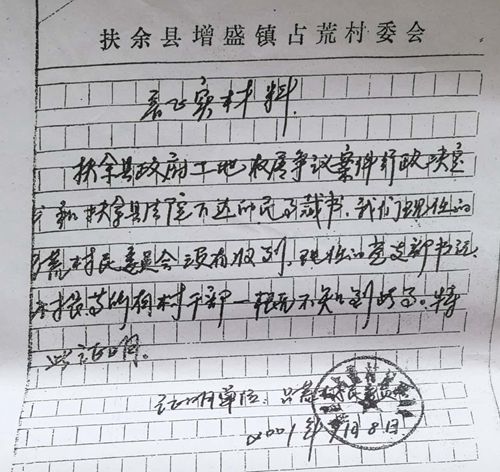 扶余县增盛镇占荒村委会
证实材料
扶余县政府土地权属争议案件行政决定
书和扶余县法院下达的民事裁书，我们现任的
占荒村民委员会没有收到，现任的党支部书记、
村长等所有村干部一概不知道此事。特
此证明。
证明单位：占荒村民委员会
2001年 月8日